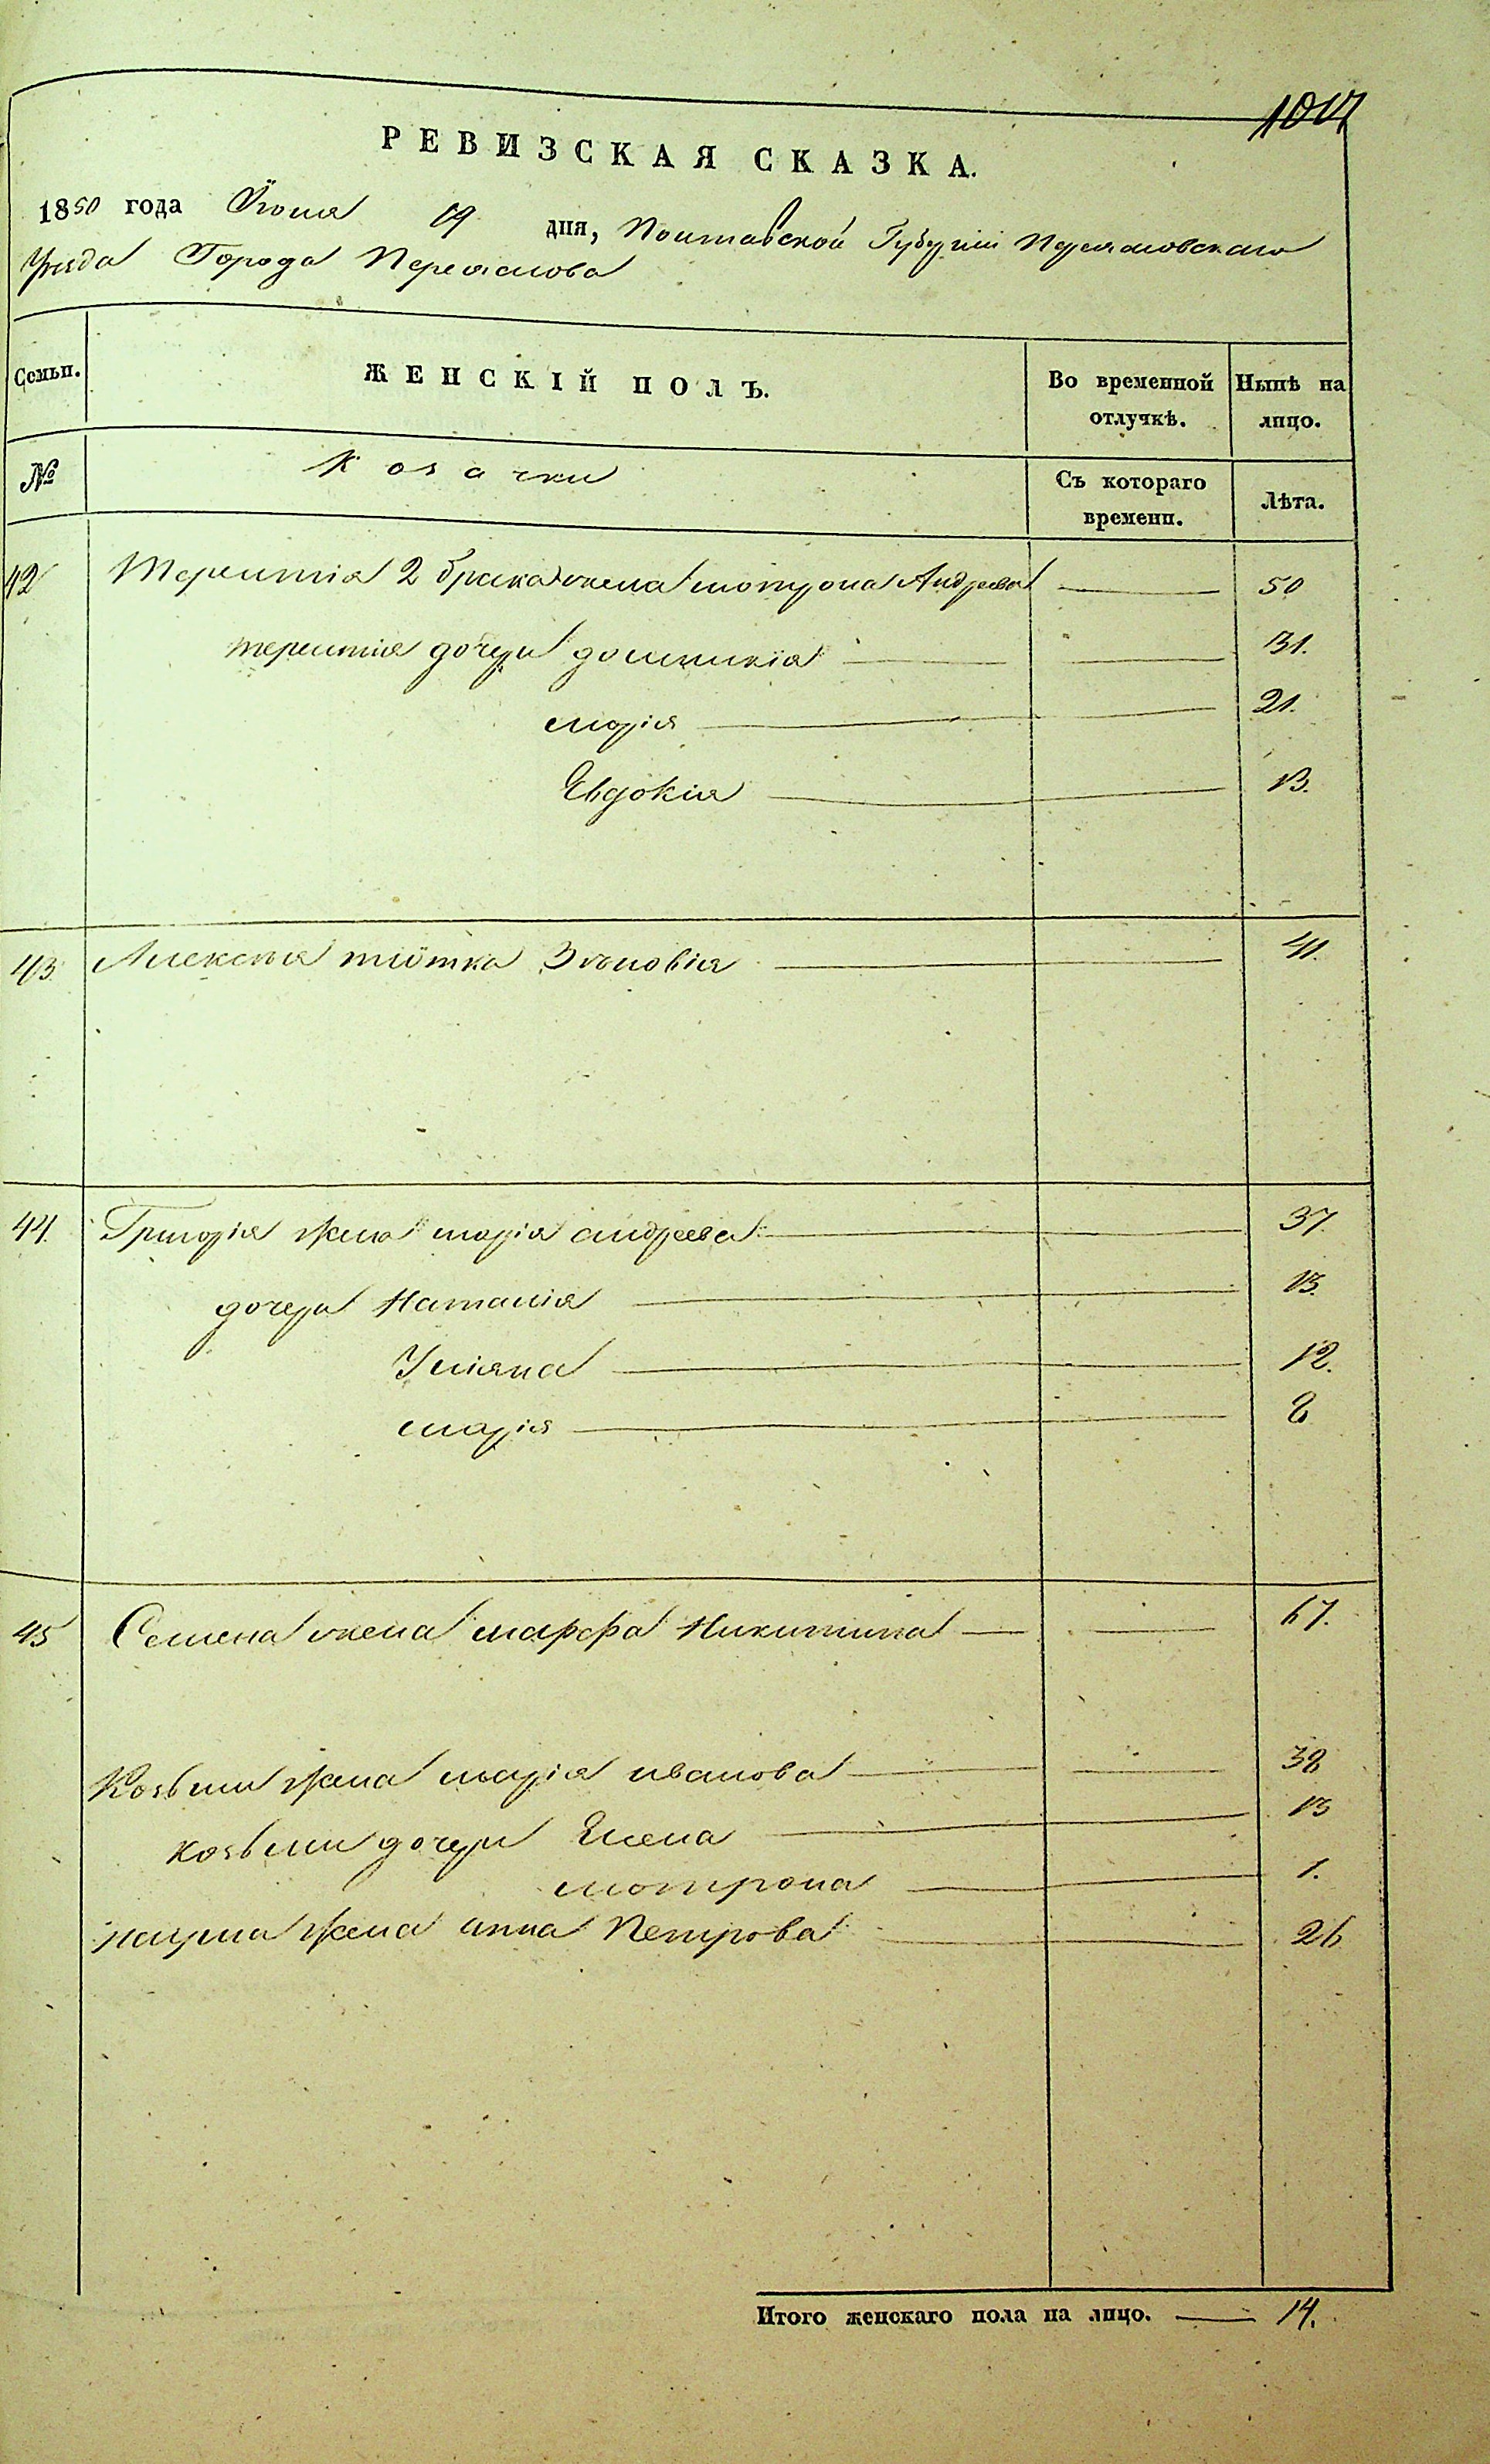 1017
РЕВИЗСКАЯ СКАЗКА.
1850 года Іюня 19 дня, Полтавской Губерніи Переяславскаго
Уезда Города Переяслова
Семьи. ЖЕНСКІЙ ПОЛЪ. Во временной отлучкѣ. Нынѣ на лицо.
№ Козачки Съ котораго времени. Лѣта.
42 Терентія 2 брака жена мотрона Андреева 50
терентія дочери домникія 31.
марія 21.
Евдокія 13.
43 Алексѣя тіотка Зѣновія 41.
44. Григорія жена марія андреева 37.
дочери Наталія 13.
Уліяна 12.
марія 8
45 Семена жена марфа Никитина 67.
Козьми жена марія иванова 38
козьми дочери Елена 13
мотрона 1.
наума жена анна Петрова 26
Итого женскаго пола на лицо. 14.